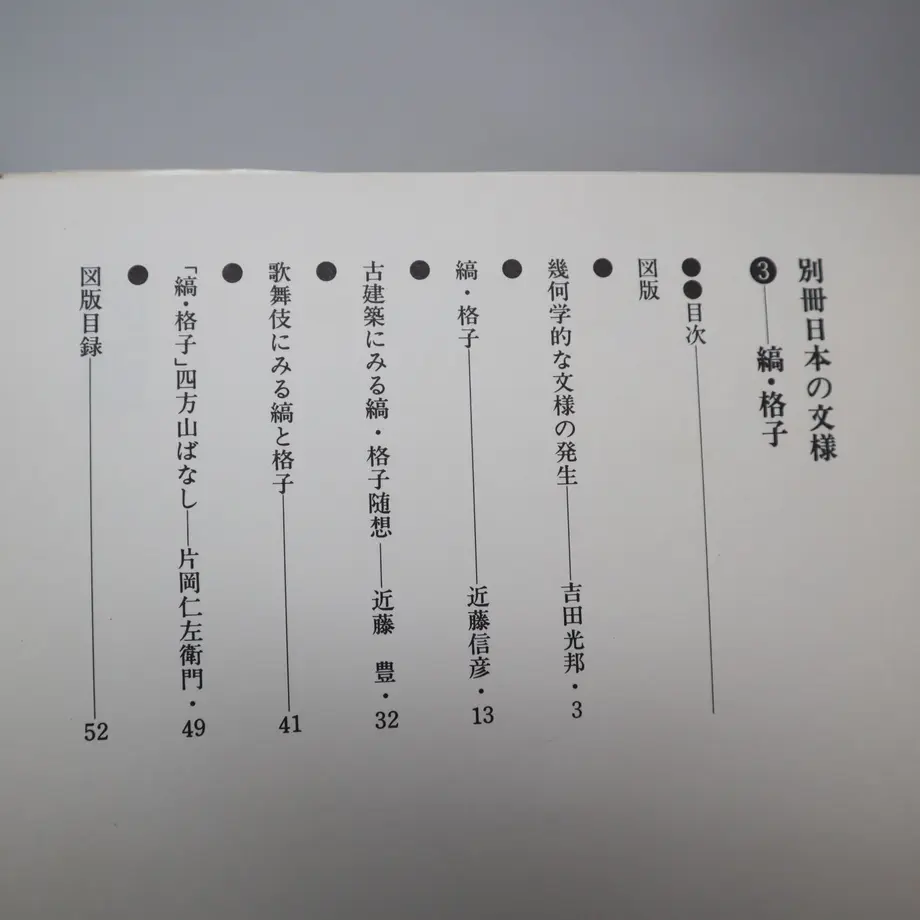 別冊日本の文様
❸——縞・格子
●●目次——
図版
●幾何学的な文様の発生——吉田光邦・3
●縞・格子——近藤信彦・13
●古建築にみる縞・格子随想——近藤 豊・32
●歌舞伎にみる縞と格子——41
●「縞・格子」四方山ばなし——片岡仁左衛門・49
●図版目録——52